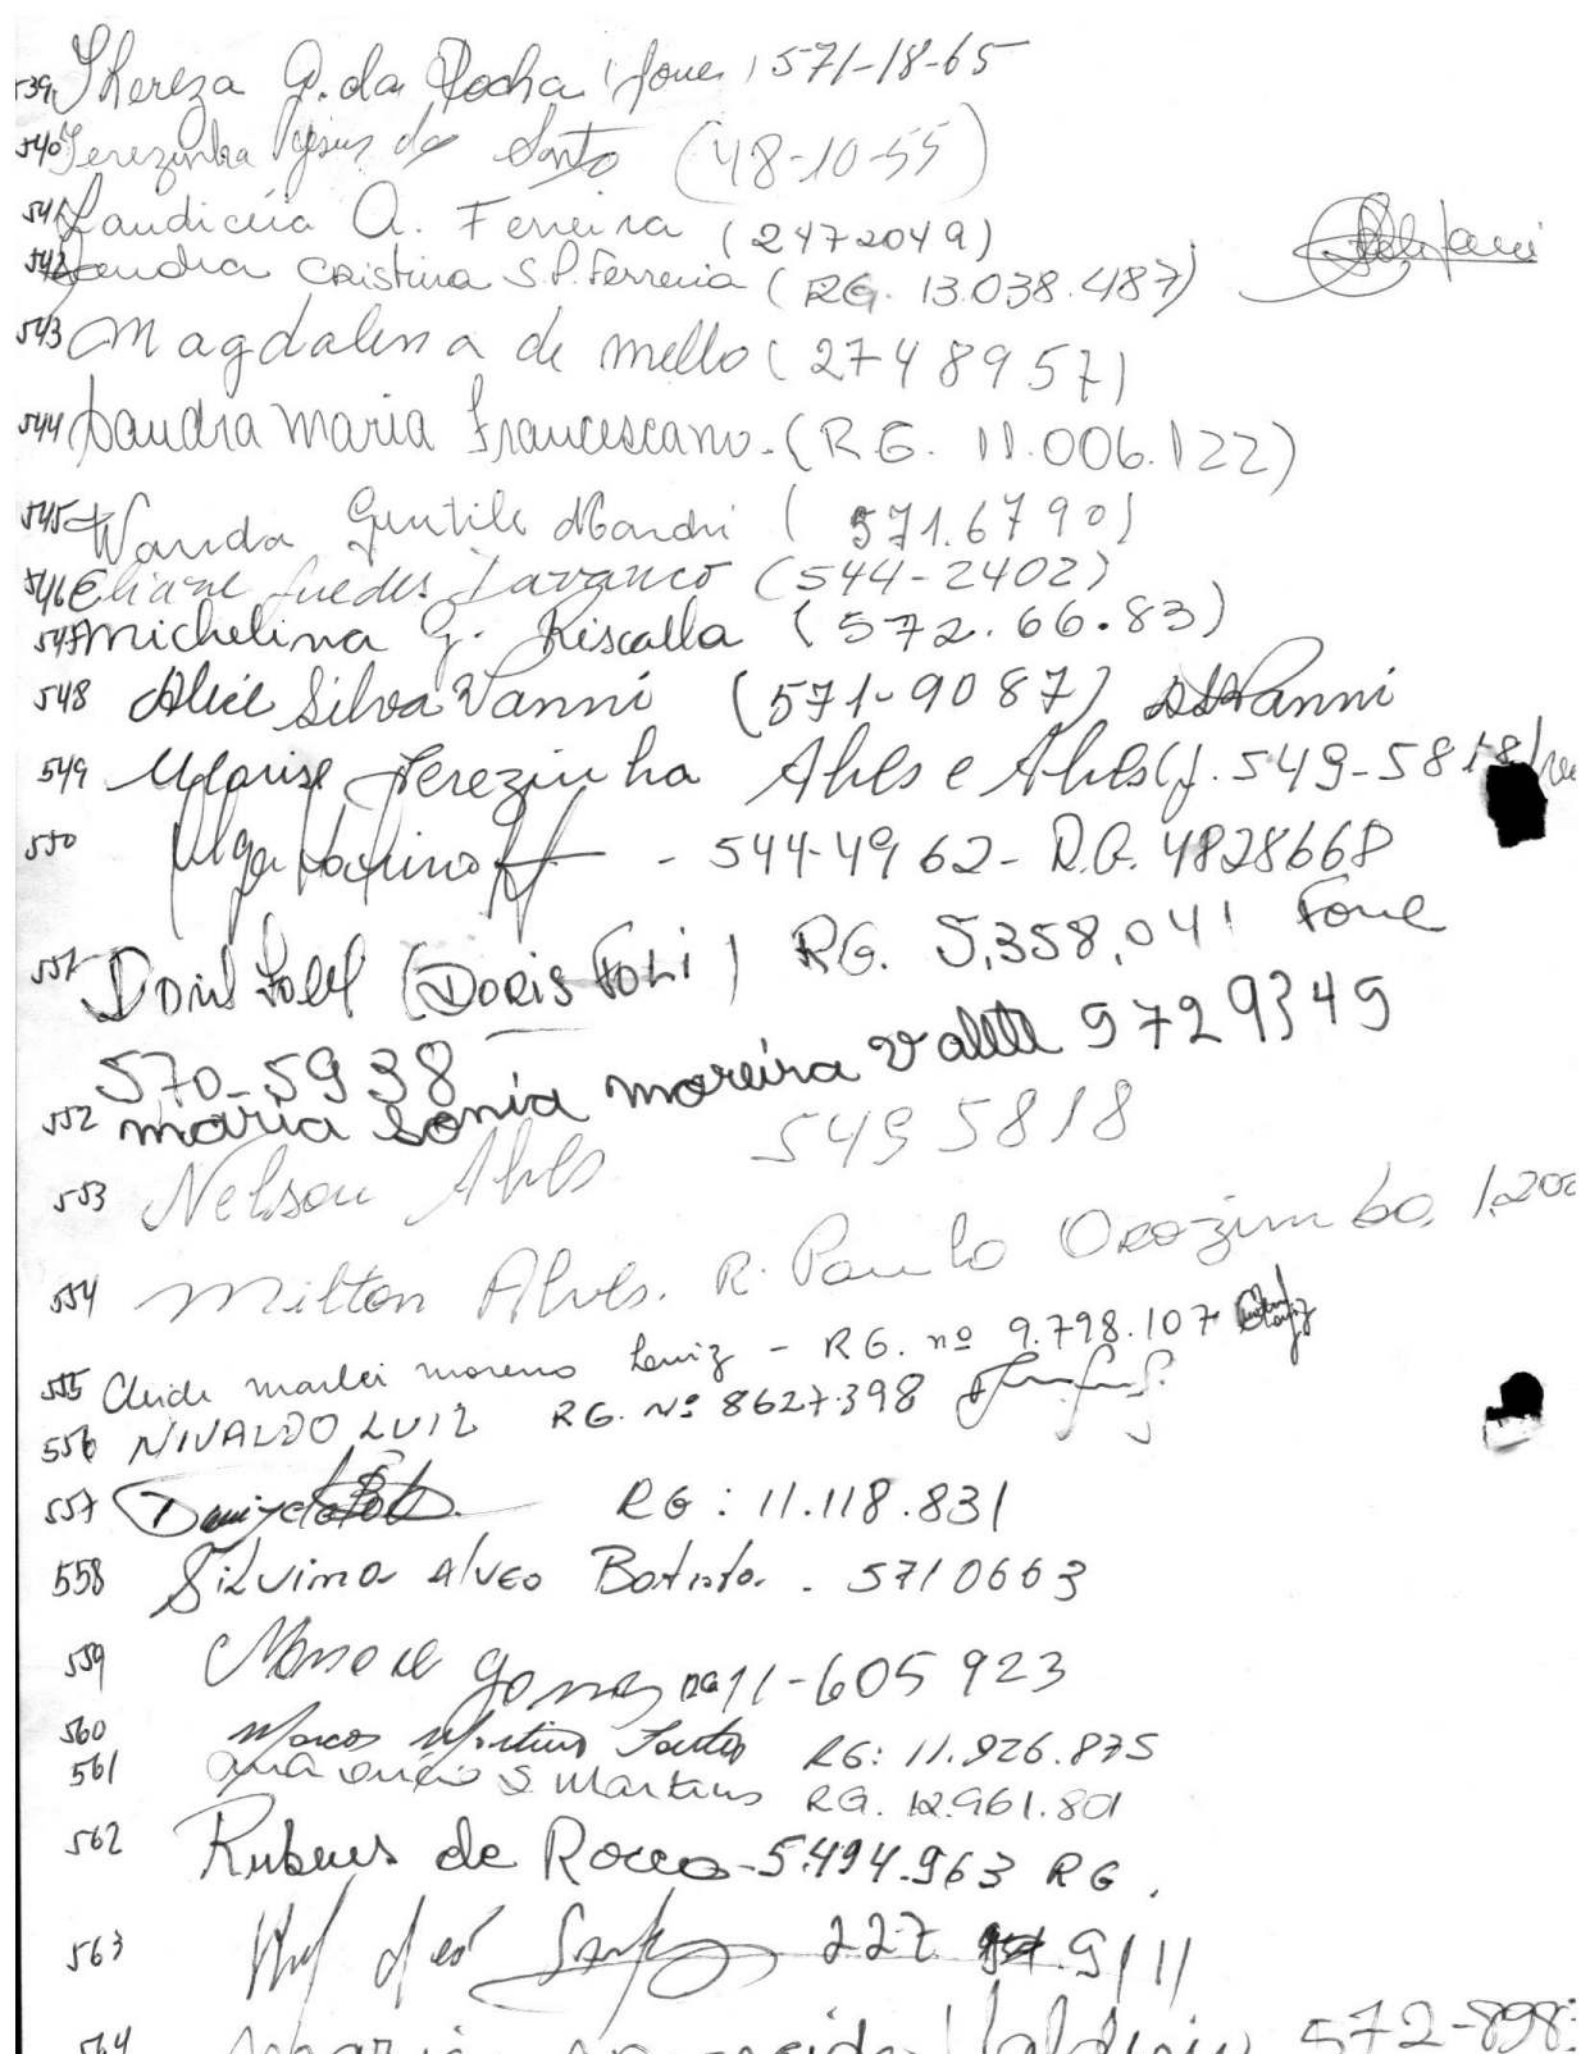 539 Thereza G. da Rocha (fone) 571-18-65
540 Terezinha Jesus do Santo (48-10-55)
541 Laudiceia A. Ferreira (2472049)
542 Sandra Cristina S.P. Ferreria (RG. 13.038.487)
543 Magdalena de mello (2748957)
544 Sandra Maria Francescano. (RG. 11.006.122)
545 Wanda Gentile Nardi (571.6790)
546 Eliane Guedes (544-2402)
547 Michelina G. Riscalla (572.66.83)
548 Alice Silva Vanni (571-9087) ASVanni
549 Marise Terezinha Alves e Alves (f. 549-5818
550 Olga - 544-4962 - R.G. 4828668
551 Doris (Doris Foli) RG. 5,358,041 Fone
570-5938
552 maria sonia moreira Valette 5729349
553 Nelson Alves 5495818
554 Milton Alves. R. Paulo Orozimbo, 1,200
555 Cleide marlei moreno Luiz - RG. nº 9.798.107
556 NIVALDO LUIZ RG. Nº 8627.398
557 RG: 11.118.831
558 Silvina Alves Batista. 5710663
559 Manoel Gomes RG 11-605923
560 Marcos Martins Santos RG: 11.926.875
561 S. Martins RG. 12.961.801
562 Rubens de Rocco - 5.494.963 RG.
563 227. 9111
564 Maria 572-898